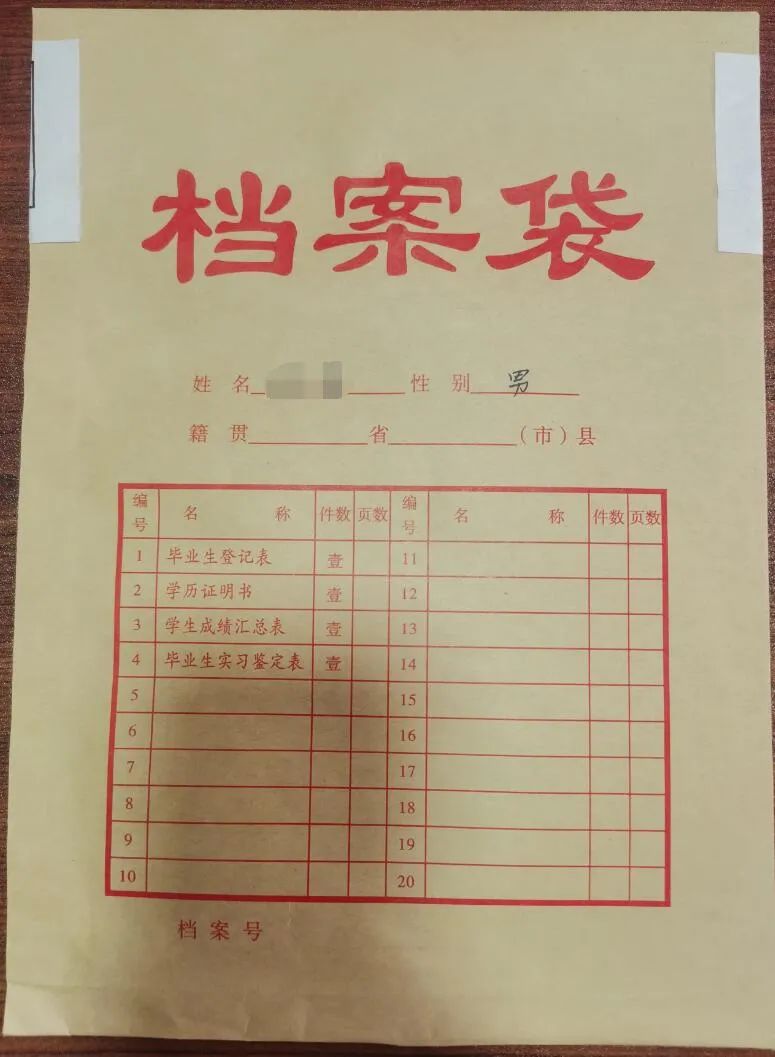 档案袋
姓名 性别 男
籍贯 省 (市)县
编号 名称 件数 页数 编号 名称 件数 页数
1 毕业生登记表 壹 11
2 学历证明书 壹 12
3 学生成绩汇总表 壹 13
4 毕业生实习鉴定表 壹 14
5 15
6 16
7 17
8 18
9 19
10 20
档案号